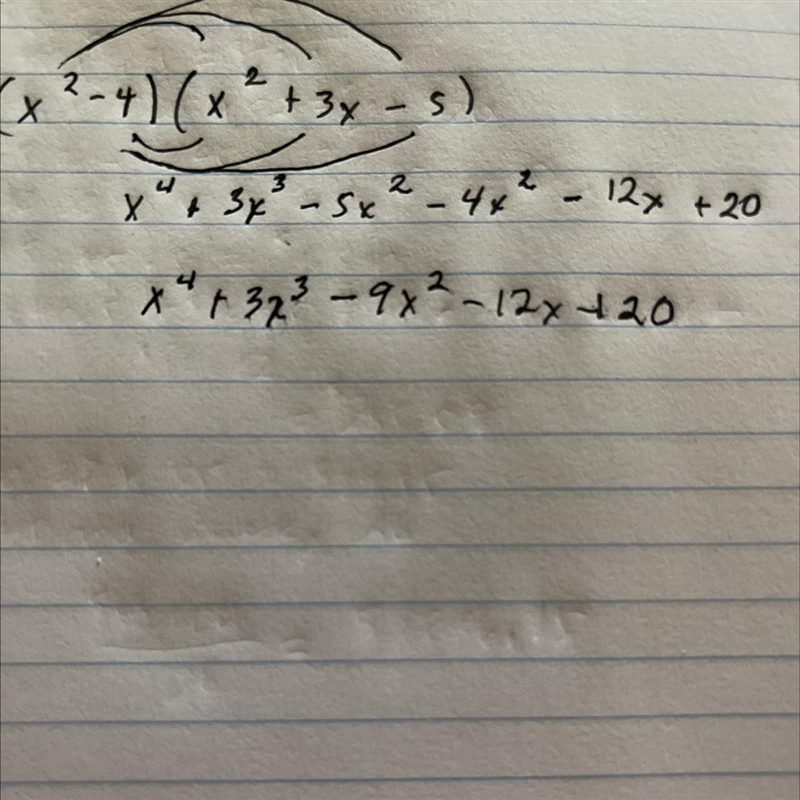 (x² - 4)(x² + 3x - 5)
x⁴ + 3x³ - 5x² - 4x² - 12x + 20
x⁴ + 3x³ - 9x² - 12x + 20